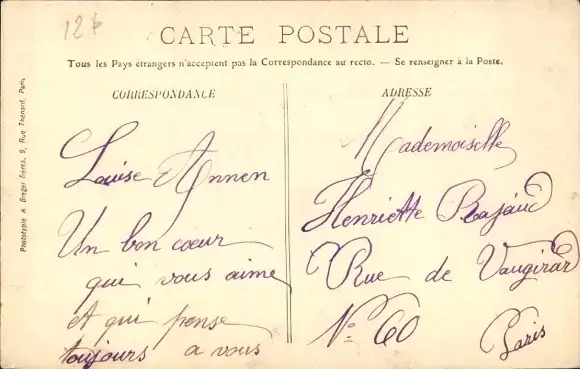 12f
CARTE POSTALE
Tous les Pays étrangers n'acceptent pas la Correspondance au recto. — Se renseigner à la Poste.
CORRESPONDANCE
Louise Annen
Un bon cœur
qui vous aime
et qui pense
toujours a vous
ADRESSE
Mademoiselle
Henriette Bajaud
Rue de Vaugirard
N° 60
Paris
Phototypie A. Breger frères, 9, Rue Thénard, Paris